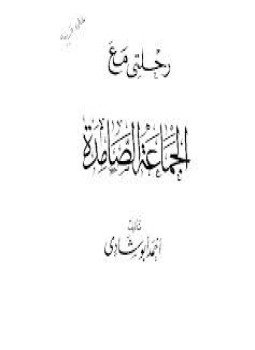 رحلتي مع
الجماعة الصامدة
تأليف
احمد ابو شادى